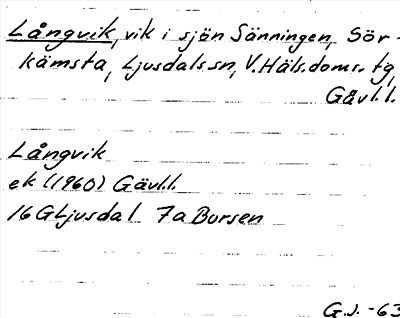 Långvik, vik i sjön Sänningen, Sör-
kämsta, Ljusdals sn, V. Häls. doms. tg,
Gävl. l.
Långvik
ek (1960) Gävl.l.
16G Ljusdal 7a Bursen
G.J. -63